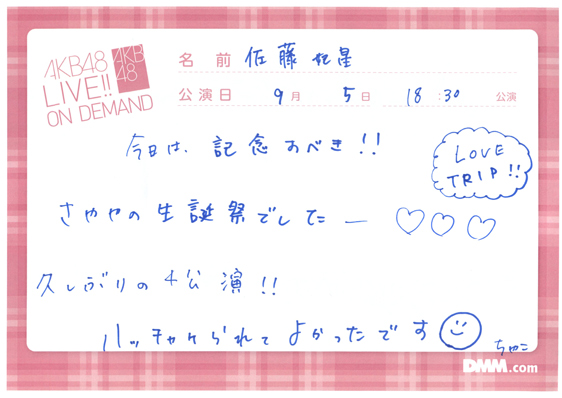 AKB48
LIVE!!
ON DEMAND
AKB
48
名前 佐藤妃星
公演日 9月 5日 18:30 公演
今日は、記念すべき!!
LOVE
TRIP!!
さややの生誕祭でしたー ♡♡♡
久しぶりの4公演!!
ハッチャケられてよかったです
ちゃこ
DMM.com